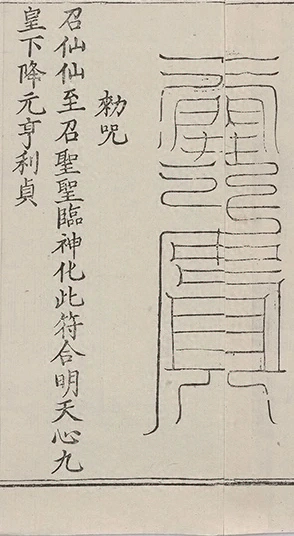 勑咒
召仙仙至召聖聖臨神化此符合明天心九
皇下降元亨利貞